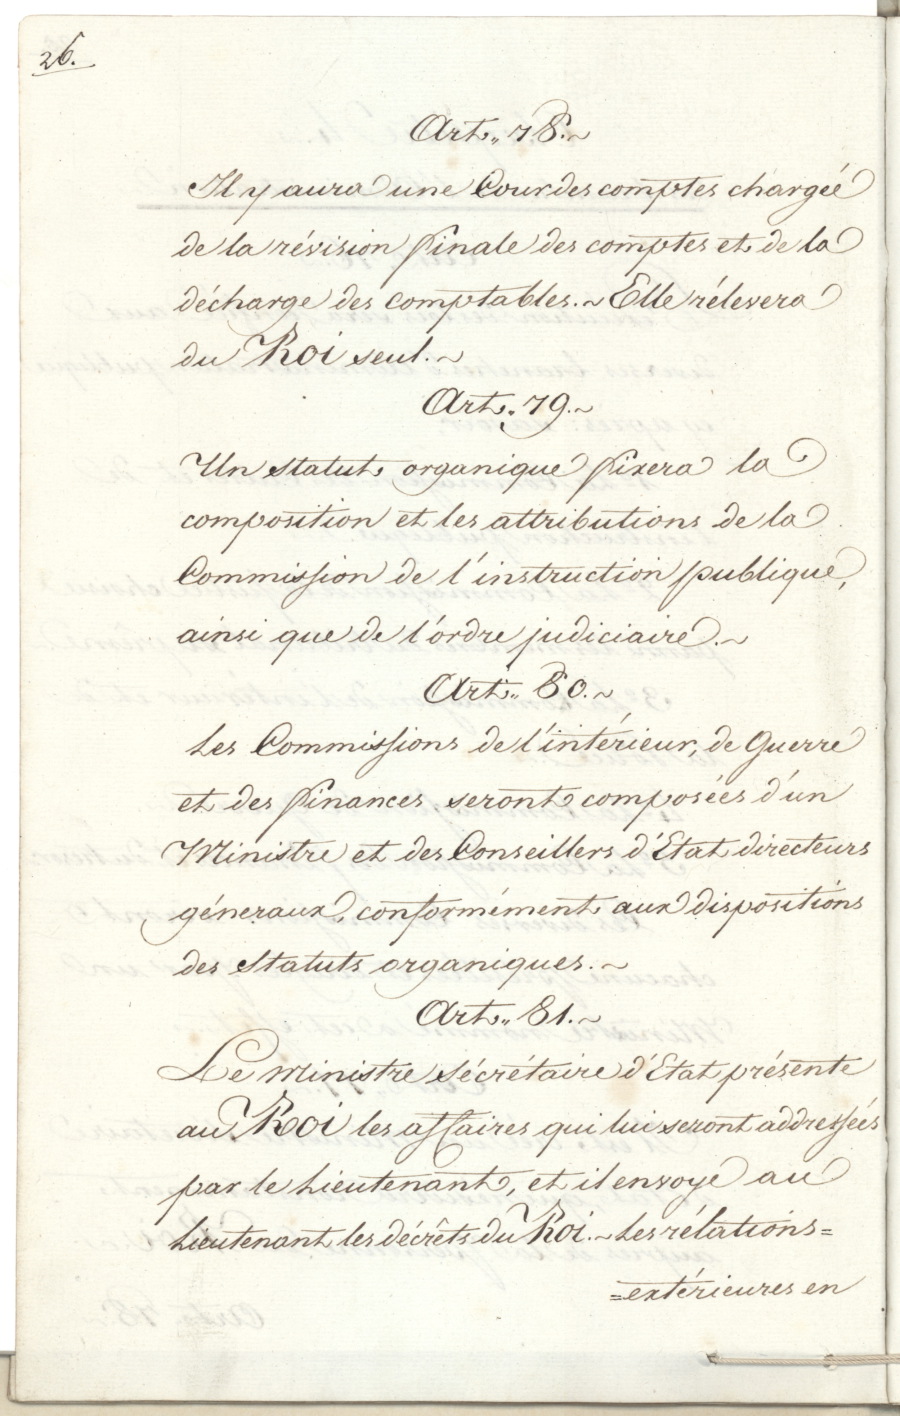 26.
Art. 78.~
Il y aura une Cour des comptes chargée
de la révision finale des comptes et de la
décharge des comptables.~ Elle rélevera
du Roi seul.~
Art. 79.~
Un statut organique fixera la
composition et les attributions de la
Commission de l'instruction publique,
ainsi que de l'ordre judiciaire.~
Art. 80.~
Les Commissions de l'intérieur, de Guerre
et des finances seront composées d'un
Ministre et des Conseillers d'Etat directeurs
géneraux, conformément aux dispositions
des Statuts organiques.~
Art. 81.~
Le Ministre Sécrétaire d'Etat présente
au Roi les affaires qui lui seront addressées
par le Lieutenant, et il envoye au
Lieutenant les décrêts du Roi.~ Les rélations=
=extérieures en